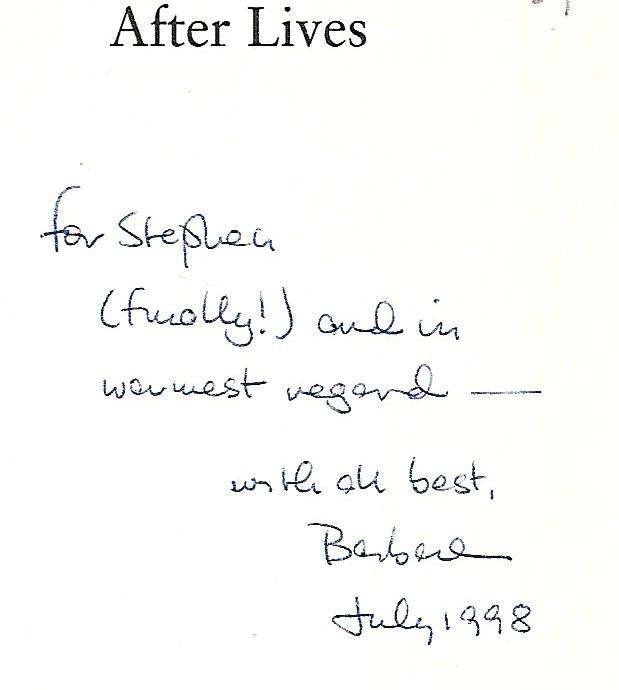 After Lives
for Stephen
(finally!) and in
warmest regard —
with all best,
Barbara
July 1998